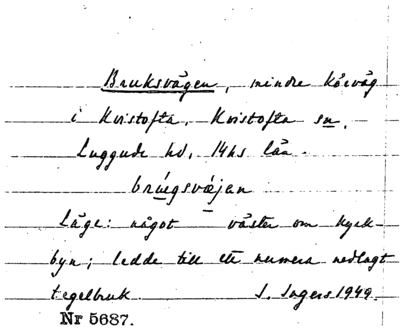 Bruksvägen, mindre körväg
i Kvistofta, Kvistofta sn,
Luggude hd, Mhs län.
brúgsvæjan
Läge: något väster om kyrk-
byn; ledde till ett numera nedlagt
tegelbruk. I. Ingers 1949.
Nr 5687.